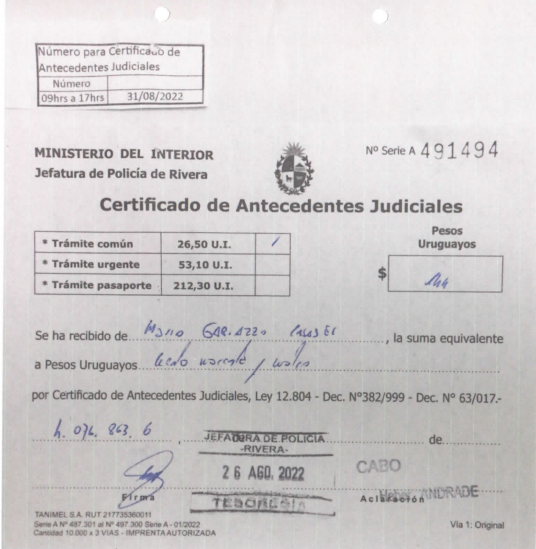 Número para Certificado de
Antecedentes Judiciales
Número
09hrs a 17hrs 31/08/2022
MINISTERIO DEL INTERIOR
Jefatura de Policía de Rivera
Nº Serie A 491494
Certificado de Antecedentes Judiciales
* Trámite común 26,50 U.I. /
* Trámite urgente 53,10 U.I.
* Trámite pasaporte 212,30 U.I.
Pesos
Uruguayos
$ 144
Se ha recibido de Mario , la suma equivalente
a Pesos Uruguayos
por Certificado de Antecedentes Judiciales, Ley 12.804 - Dec. Nº382/999 - Dec. Nº 63/017.-
4. 076. 863. 6 , de
JEFATURA DE POLICIA
-RIVERA-
26 AGO. 2022
TESORERIA
CABO
ANDRADE
Firma
Aclaración
TANIMEL S.A. RUT 217735360011
Serie A Nº 487.301 al Nº 497.300 Serie A - 01/2022
Cantidad 10.000 x 3 VIAS - IMPRENTA AUTORIZADA
Vía 1: Original